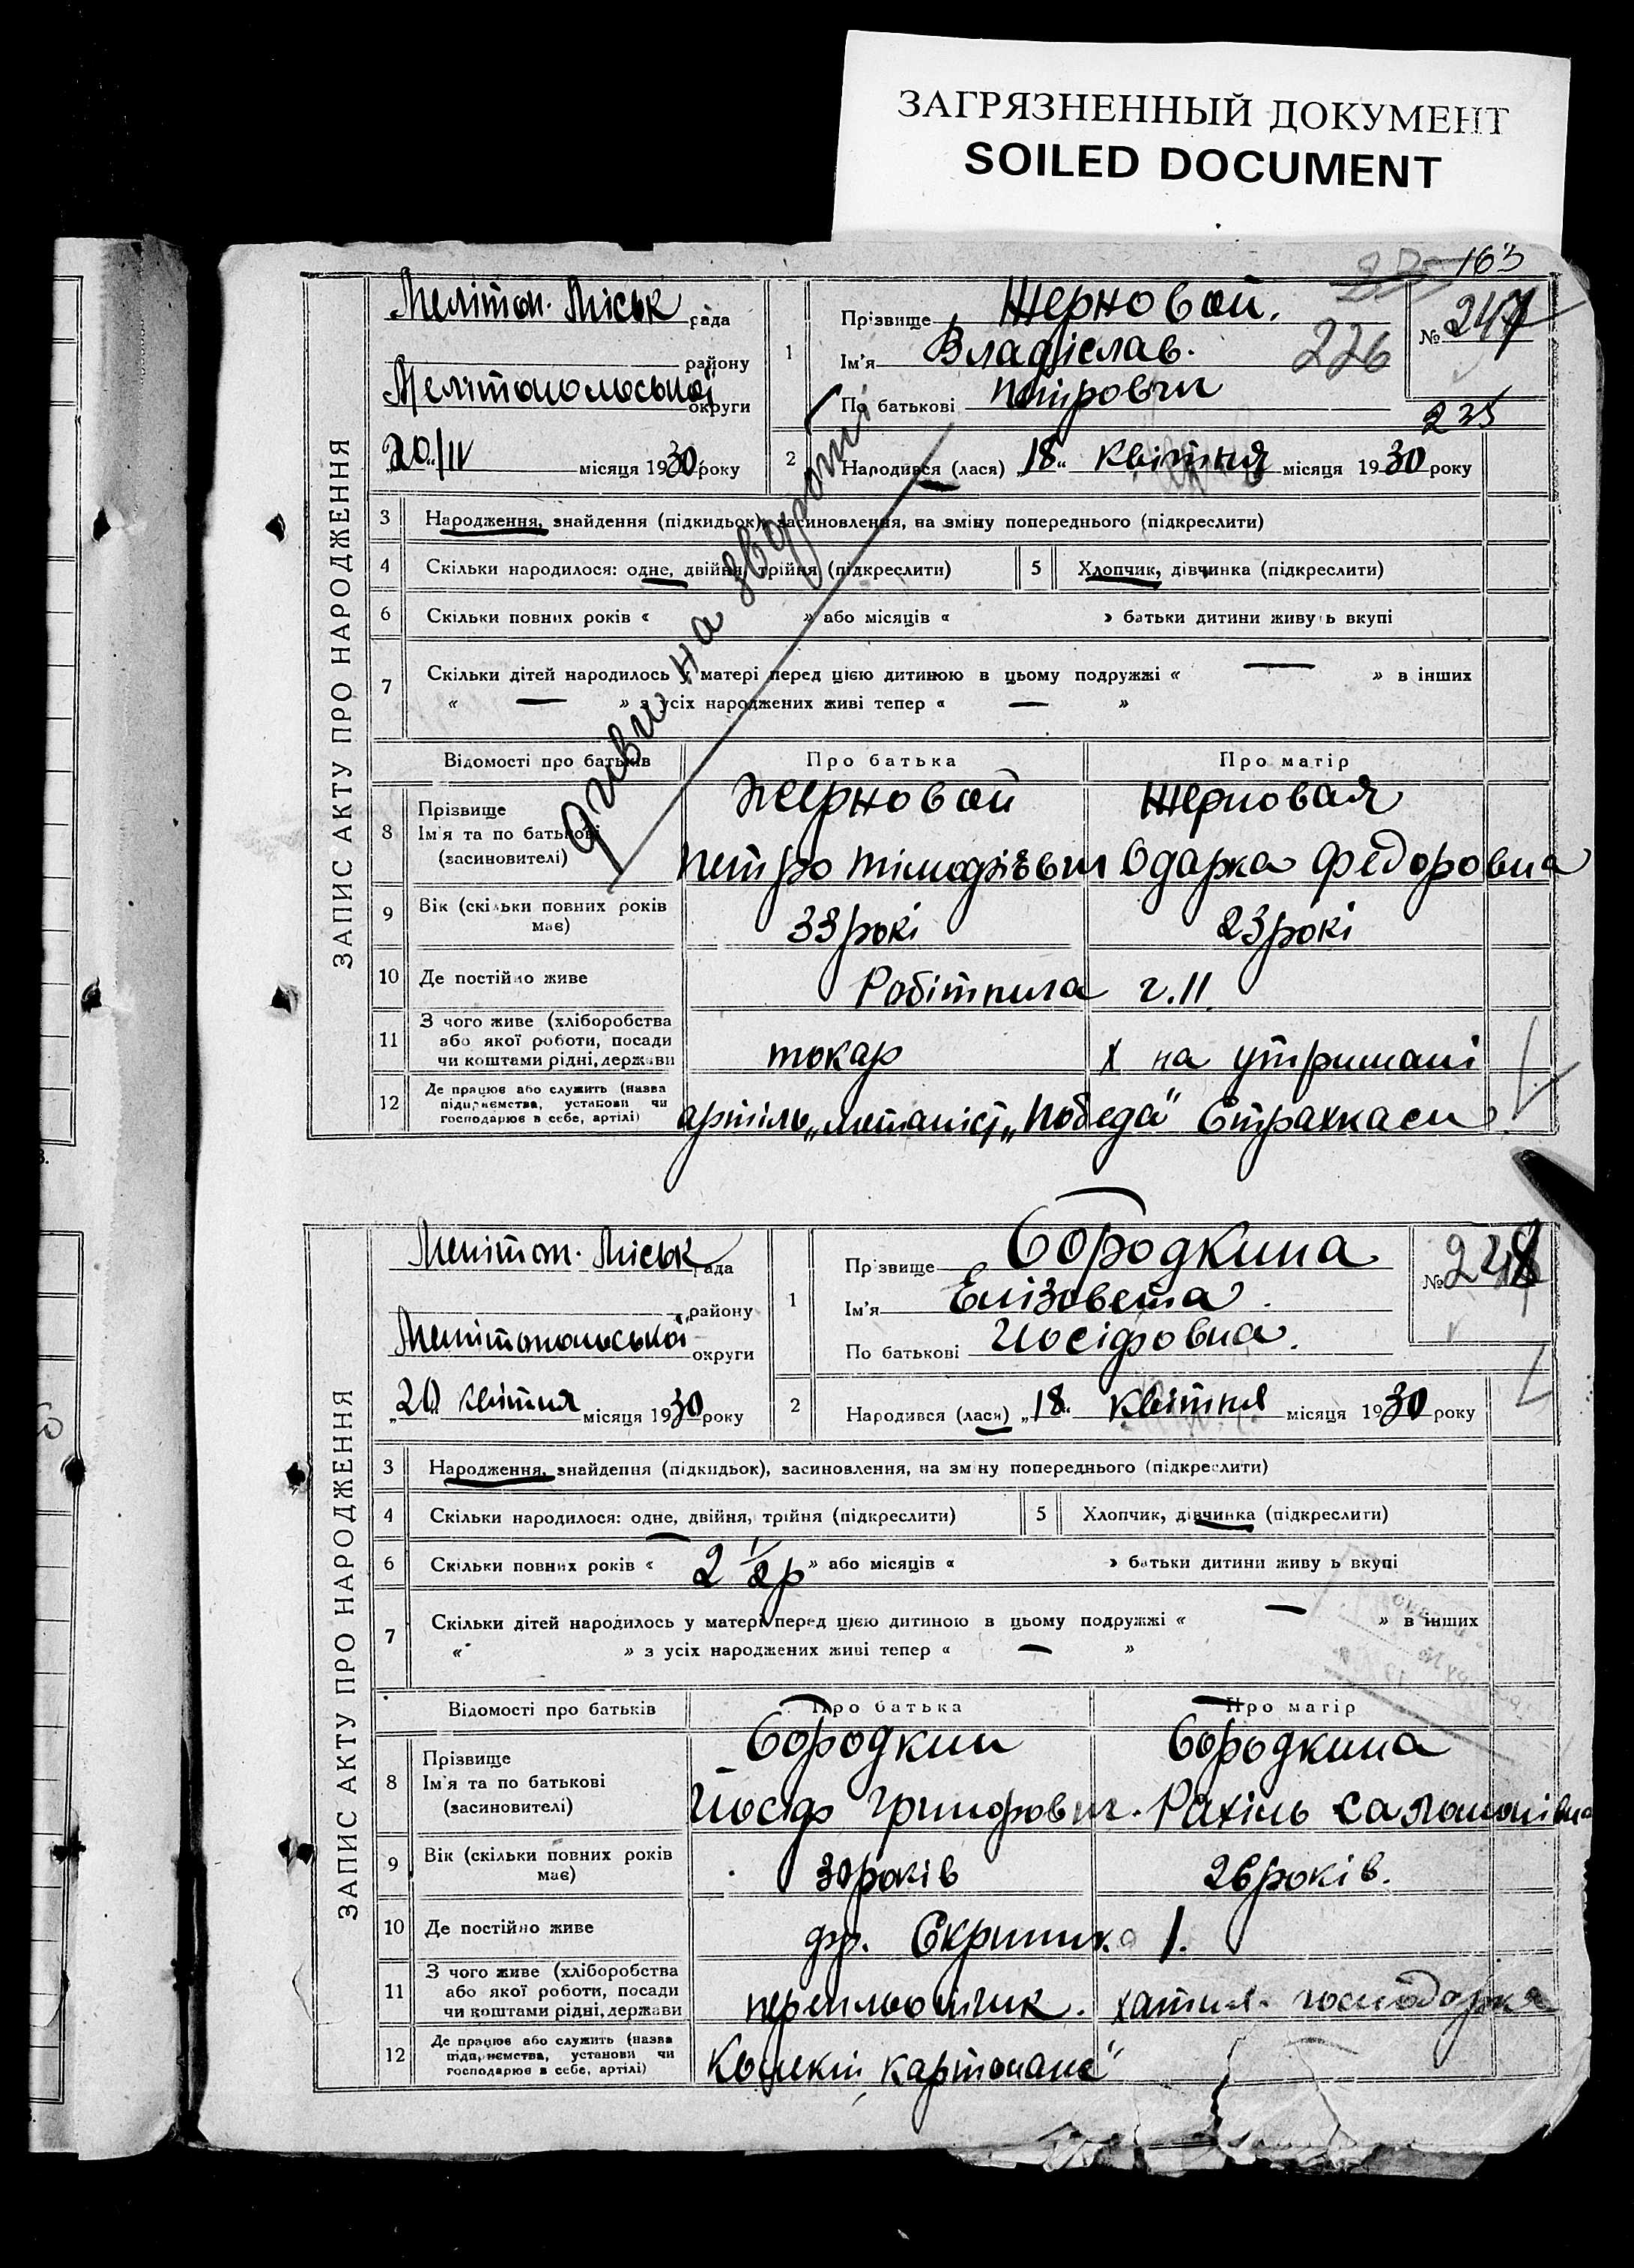 ЗАГРЯЗНЕННЫЙ ДОКУМЕНТ
SOILED DOCUMENT
163
ЗАПИС АКТУ ПРО НАРОДЖЕННЯ
Мелітоп. Міськ рада
району
Мелітопольської округи
20/IV місяця 1930 року
1 Прізвище Жерновой.
Ім'я Владіслав.
226
По батькові Петрович
№ 247
235
2 Народився (лася) „18" квітня місяця 1930 року
Дивись на звороті
3 Народження, знайдення (підкидьок), засиновлення, на зміну попереднього (підкреслити)
4 Скільки народилося: одне, двійня, трійня (підкреслити) 5 Хлопчик, дівчинка (підкреслити)
6 Скільки повних років « » або місяців « » батьки дитини живуть вкупі
7 Скільки дітей народилось у матері перед цією дитиною в цьому подружжі « — » в інших
« — » з усіх народжених живі тепер « — »
Відомості про батьків Про батька Про матір
8 Прізвище
Ім'я та по батькові
(засиновителі)
Жерновой Жерновая
Петро Тімофієвич Одарка Федоровна
9 Вік (скільки повних років має) 33 рокі 23 рокі
10 Де постійно живе Робітнича 2.11
11 З чого живе (хліборобства
або якої роботи, посади
чи коштами рідні, держави
токар х на утримані
12 Де працює або служить (назва
підприємства, установи чи
господарює в себе, артілі)
артіль „Металіст„ Победа" Страхкаси
ЗАПИС АКТУ ПРО НАРОДЖЕННЯ
Мелітоп. Міськ рада
району
Мелітопольської округи
„20 квітня місяця 1930 року
1 Прізвище Бородкина
Ім'я Елізовета.
По батькові Йосіфовна.
№ 248
2 Народився (лася) „18. квітня місяця 1930 року
3 Народження, знайдення (підкидьок), засиновлення, на зміну попереднього (підкреслити)
4 Скільки народилося: одне, двійня, трійня (підкреслити) 5 Хлопчик, дівчинка (підкреслити)
6 Скільки повних років « 2 1/2 р » або місяців « » батьки дитини живуть вкупі
7 Скільки дітей народилось у матері перед цією дитиною в цьому подружжі « — » в інших
« » з усіх народжених живі тепер « — »
Відомості про батьків Про батька Про матір
8 Прізвище
Ім'я та по батькові
(засиновителі)
Бородкин Бородкина
Йосіф Григорович. Рахіль Саломонівна
9 Вік (скільки повних років має) 30 років 26 років.
10 Де постійно живе 1.
11 З чого живе (хліборобства
або якої роботи, посади
чи коштами рідні, держави
перепльотчик. хатня господарка
12 Де працює або служить (назва
підприємства, установи чи
господарює в себе, артілі)